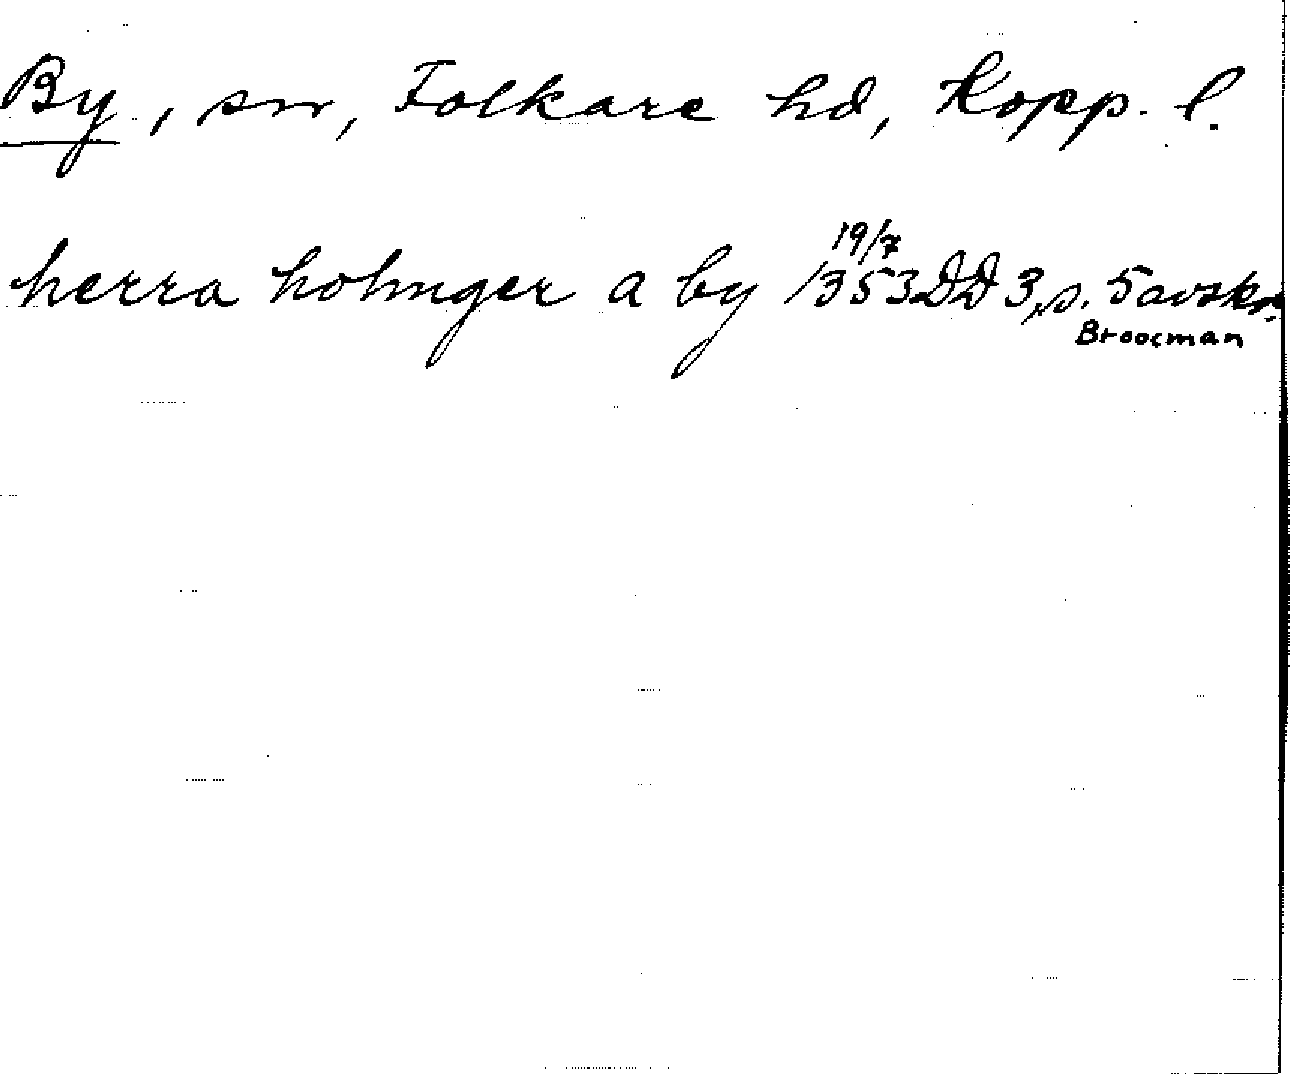 By, sn, Folkare hd, Kopp. l.
herra holmger a by 19/7 1353 DD 3, s. 5 avskr.
Broocman